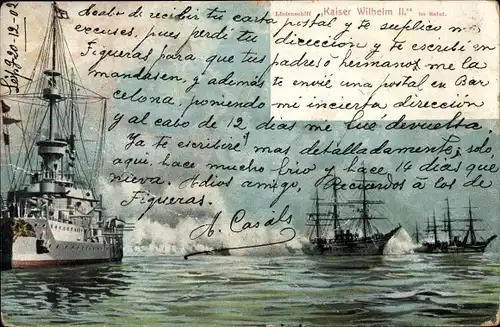 Linienschiff "Kaiser Wilhelm II." im Hafen.
20-12-02
Acabo de recibir tu carta postal y te suplico me
excuses, pues perdi tu direccion y te escribi en
Figueras para que tus padres ó hermanos me la
mandasen, y además te envié una postal en Bar
celona, poniendo mi incierta dirección
y al cabo de 12 dias me fué devuelta.
Ya te escribiré mas detalladamente; solo
aqui, hace mucho frio y hace 14 dias que
nieva. Adios amigo, Recuerdos á los de
Figueras.
A. Casáls